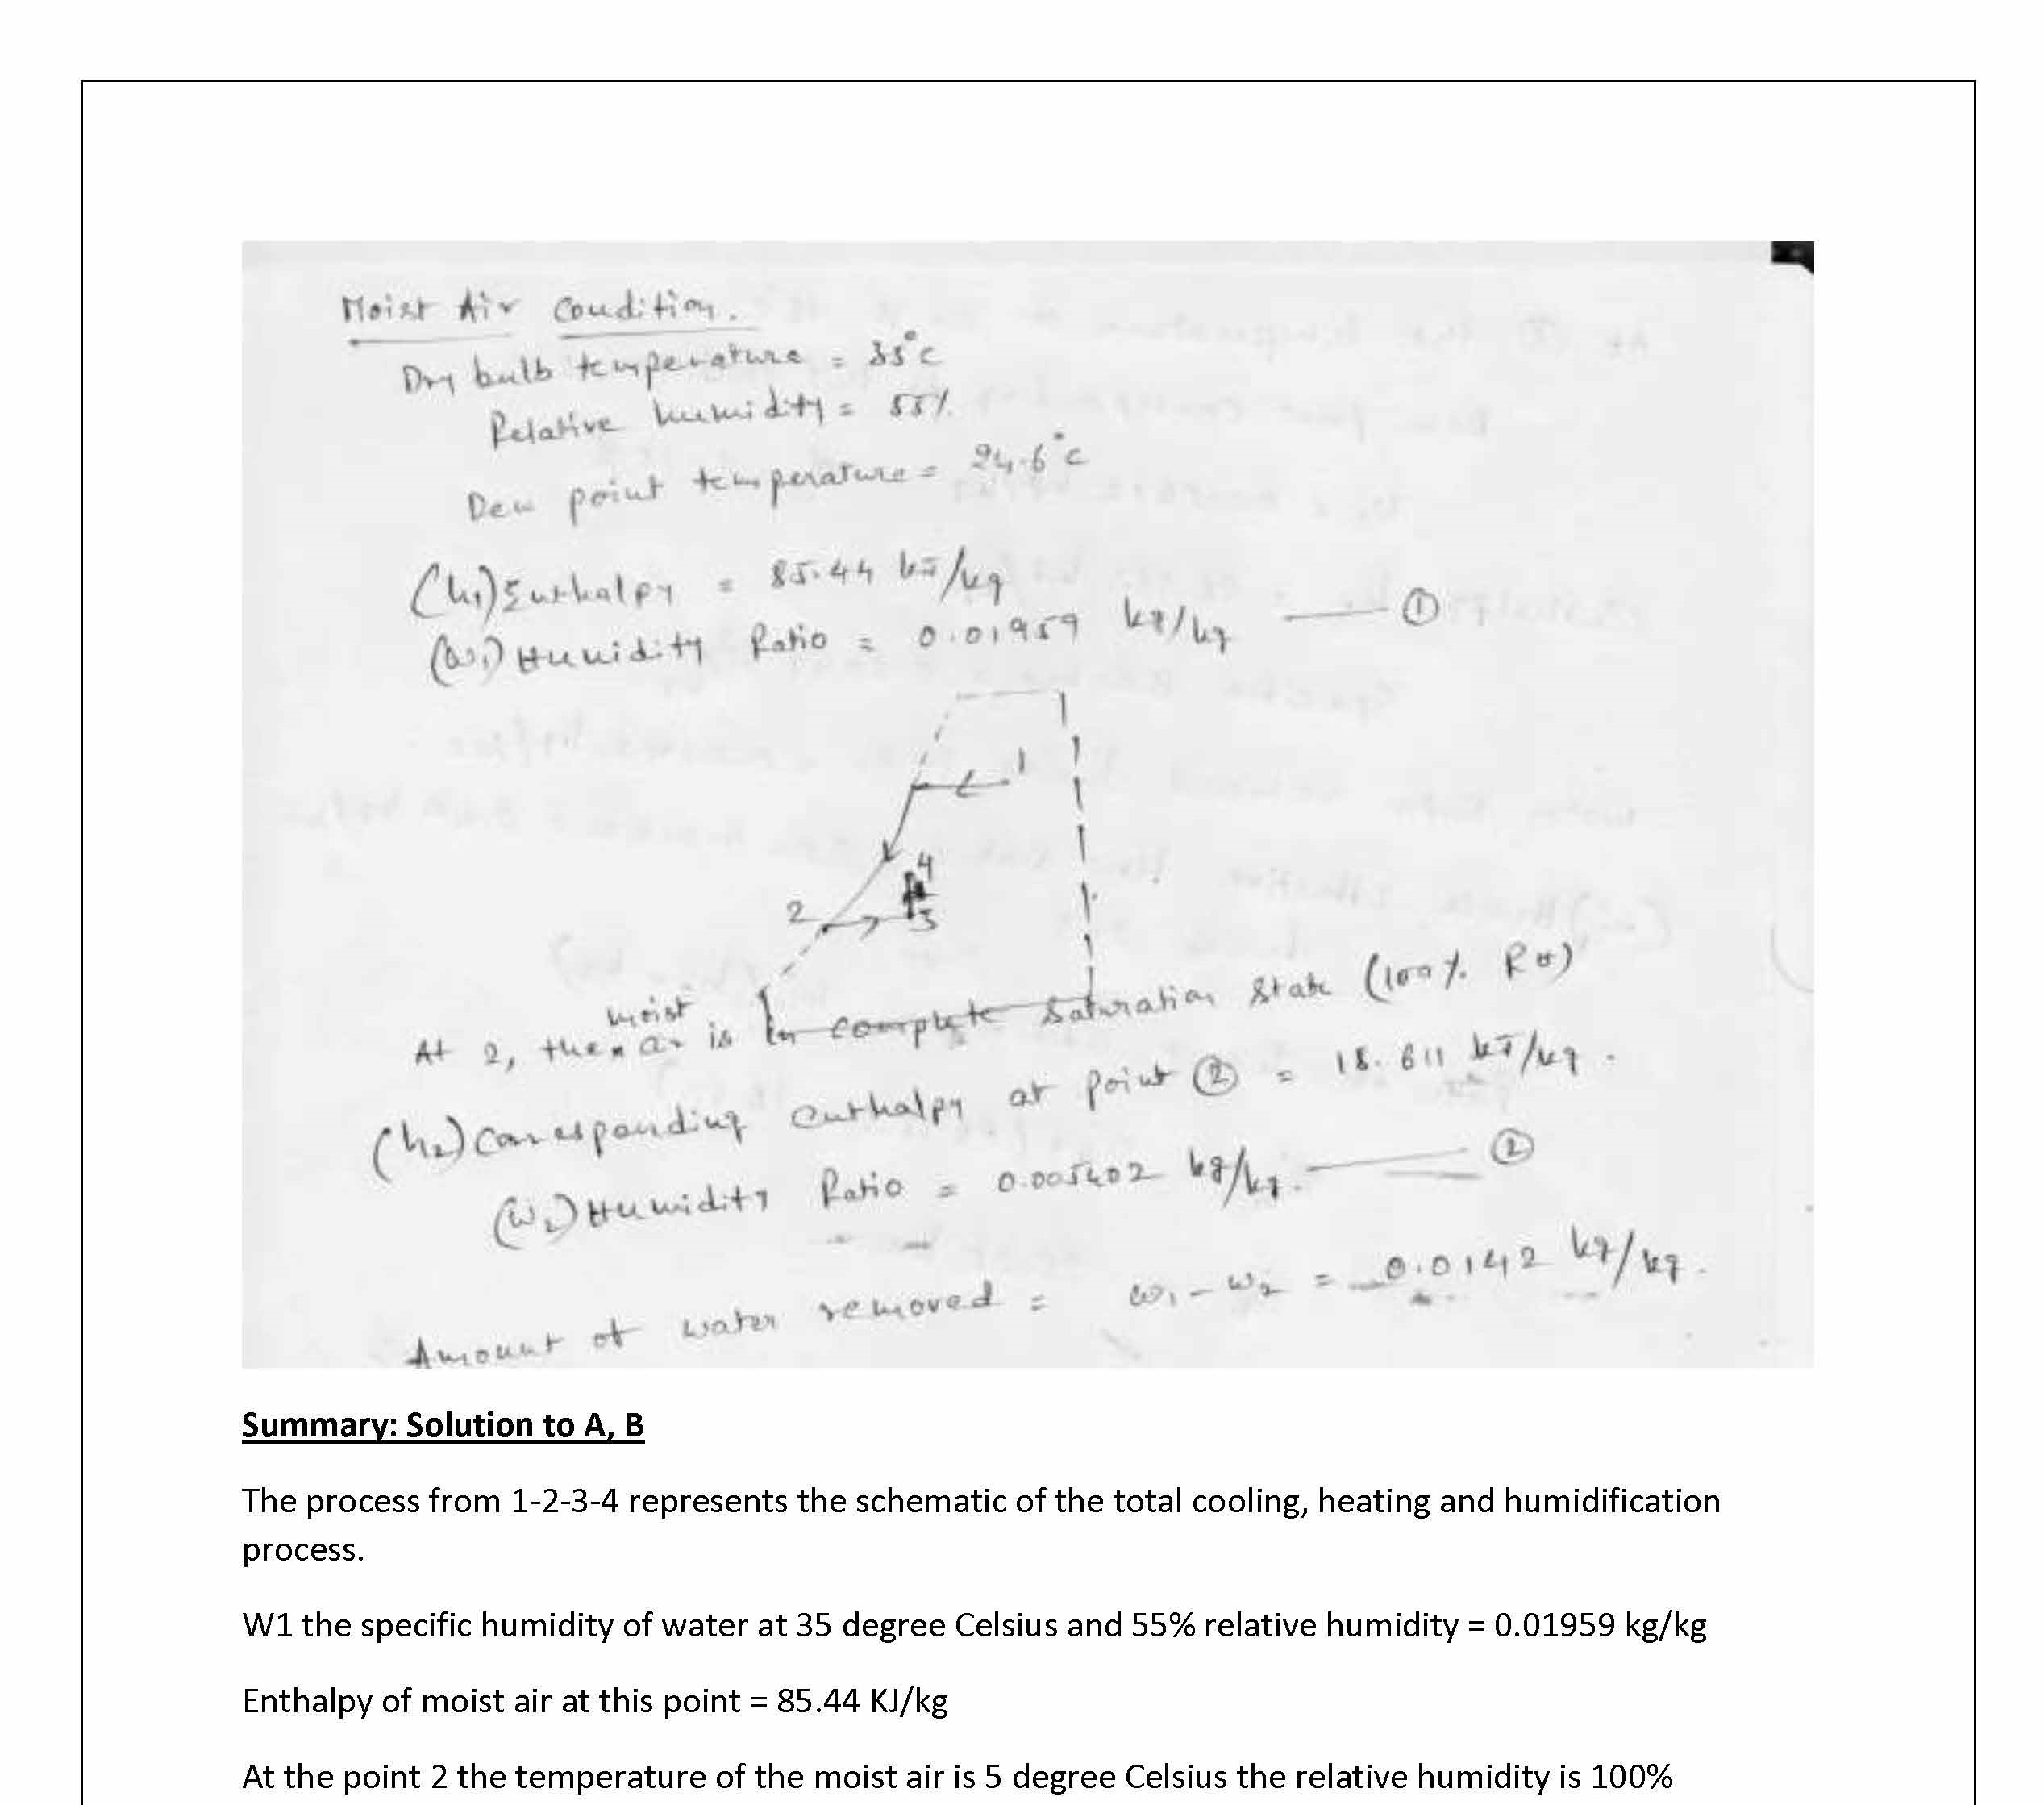 Moist Air Condition.
Dry bulb temperature = 35°c
Relative humidity = 55%.
Dew point temperature = 24.6°c
(h1) Enthalpy = 85.44 kJ/kg
(W1) Humidity Ratio = 0.01959 kg/kg —— ①
1
4
2
3
moist
At 2, the air is in complete saturation state (100% RH)
(h2) Corresponding enthalpy at point ② = 18.611 kJ/kg.
(W2) Humidity Ratio = 0.005402 kg/kg. —— ②
Amount of water removed = ω1 - ω2 = 0.0142 kg/kg.
Summary: Solution to A, B
The process from 1-2-3-4 represents the schematic of the total cooling, heating and humidification
process.
W1 the specific humidity of water at 35 degree Celsius and 55% relative humidity = 0.01959 kg/kg
Enthalpy of moist air at this point = 85.44 KJ/kg
At the point 2 the temperature of the moist air is 5 degree Celsius the relative humidity is 100%